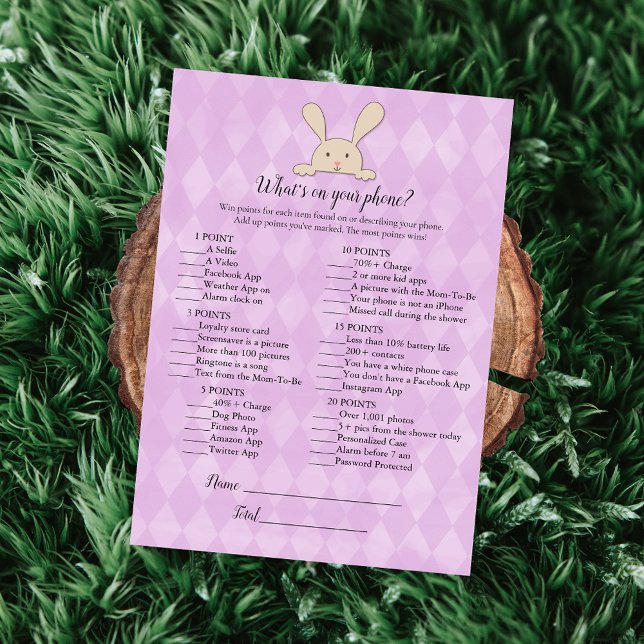 What's on your phone?
Win points for each item found on or describing your phone.
Add up points you've marked. The most points wins!
1 POINT
_____A Selfie
_____A Video
_____Facebook App
_____Weather App on
_____Alarm clock on
3 POINTS
_____Loyalty store card
_____Screensaver is a picture
_____More than 100 pictures
_____Ringtone is a song
_____Text from the Mom-To-Be
5 POINTS
_____40%+ Charge
_____Dog Photo
_____Fitness App
_____Amazon App
_____Twitter App
10 POINTS
_____70%+ Charge
_____2 or more kid apps
_____A picture with the Mom-To-Be
_____Your phone is not an iPhone
_____Missed call during the shower
15 POINTS
_____Less than 10% battery life
_____200+ contacts
_____You have a white phone case
_____You don't have a Facebook App
_____Instagram App
20 POINTS
_____Over 1,001 photos
_____5+ pics from the shower today
_____Personalized Case
_____Alarm before 7 am
_____Password Protected
Name ____________________
Total______________